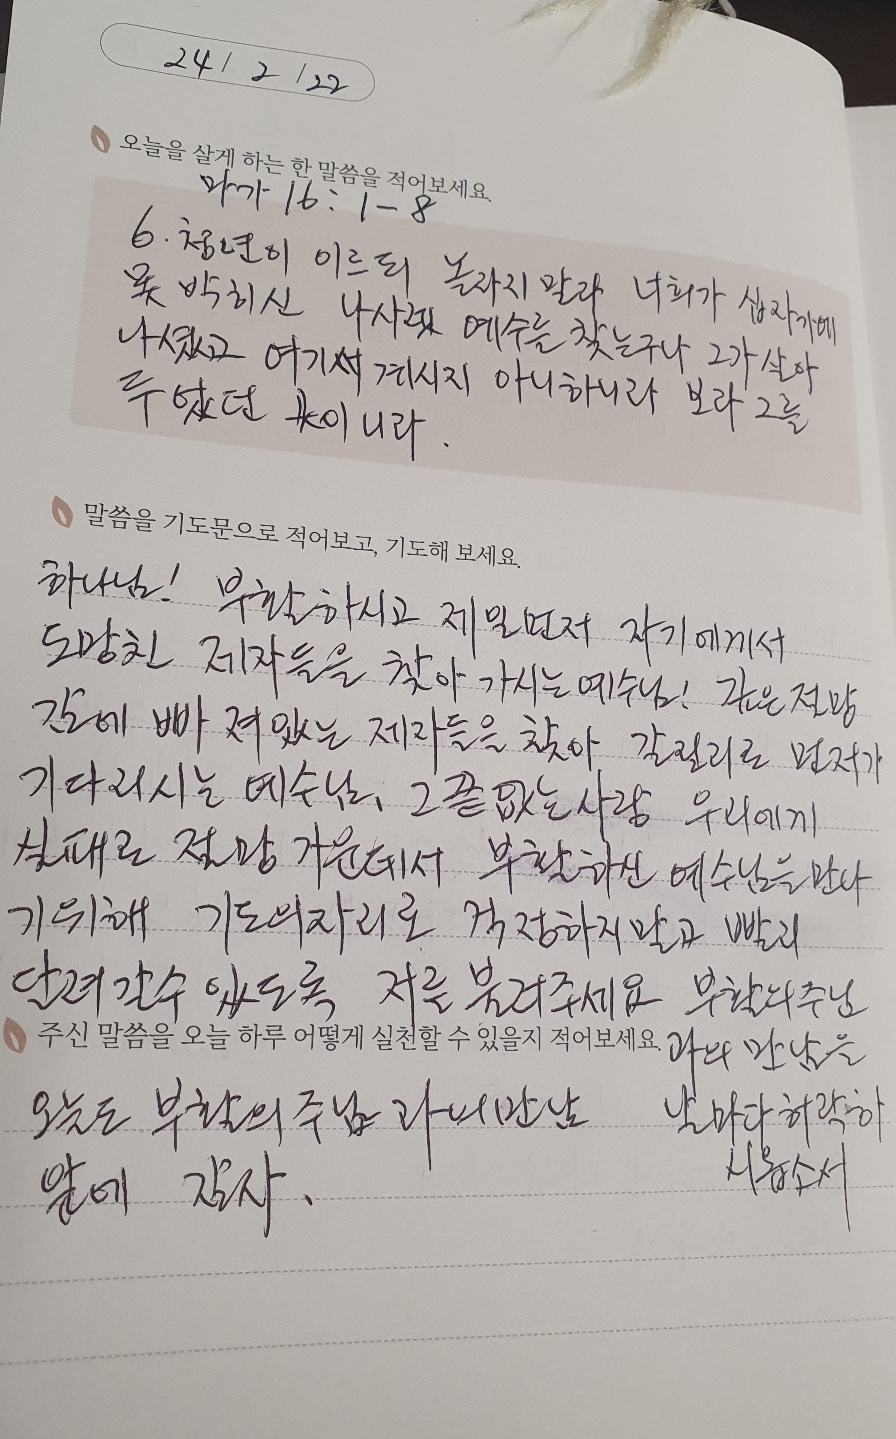 24 / 2 / 22
오늘을 살게 하는 한 말씀을 적어보세요.
마가 16 : 1 - 8
6. 청년이 이르되 놀라지 말라 너희가 십자가에
못 박히신 나사렛 예수를 찾는구나 그가 살아
나셨고 여기서 계시지 아니하니라 보라 그를
두었던 곳이니라.
말씀을 기도문으로 적어보고, 기도해 보세요.
하나님! 부활하시고 제일먼저 자기에게서
도망친 제자들을 찾아 가시는 예수님! 깊은 절망
감에 빠져있는 제자들을 찾아 갈릴리로 먼저가
기다리시는 예수님, 그 끝없는 사랑 우리에게
실패로 절망 가운데서 부활하신 예수님을 만나
기위해 기도의자리로 걱정하지말고 빨리
달려갈수 있도록 저를 불러주세요 부활의주님
과의 만남을
날마다 허락하
시옵소서
주신 말씀을 오늘 하루 어떻게 실천할 수 있을지 적어보세요.
오늘도 부활의 주님 과의만남
앞에 감사.